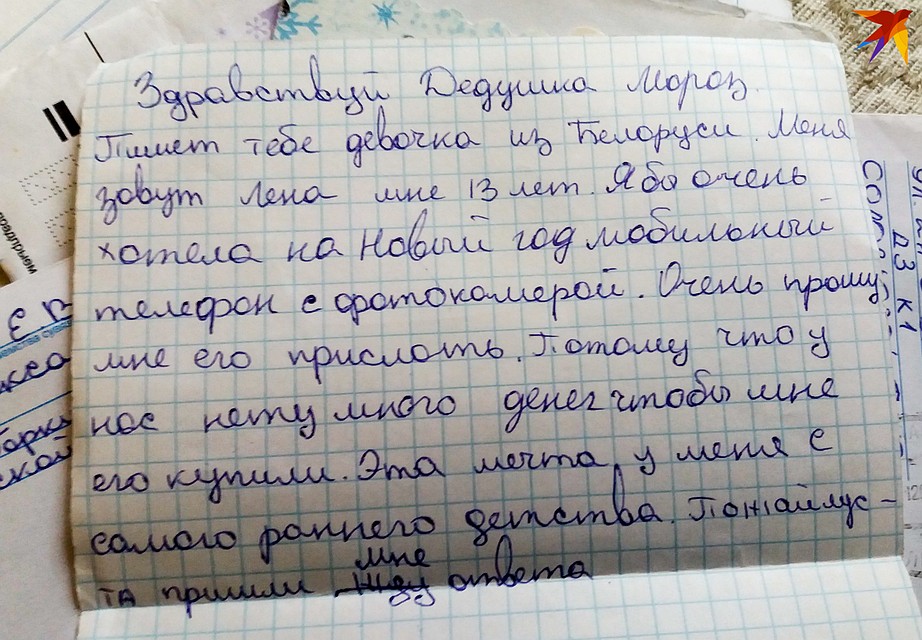 Здравствуй Дедушка Мороз.
Пишет тебе девочка из Белоруси. Меня
зовут Лена мне 13 лет. Я бы очень
хотела на Новый год мобильный
телефон с фотокамерой. Очень прошу
мне его прислать. Потому что у
нас нету много денег чтобы мне
его купили. Эта мечта у меня с
самого раннего детства. Пожайлус-
та пришли мне
Жду ответа